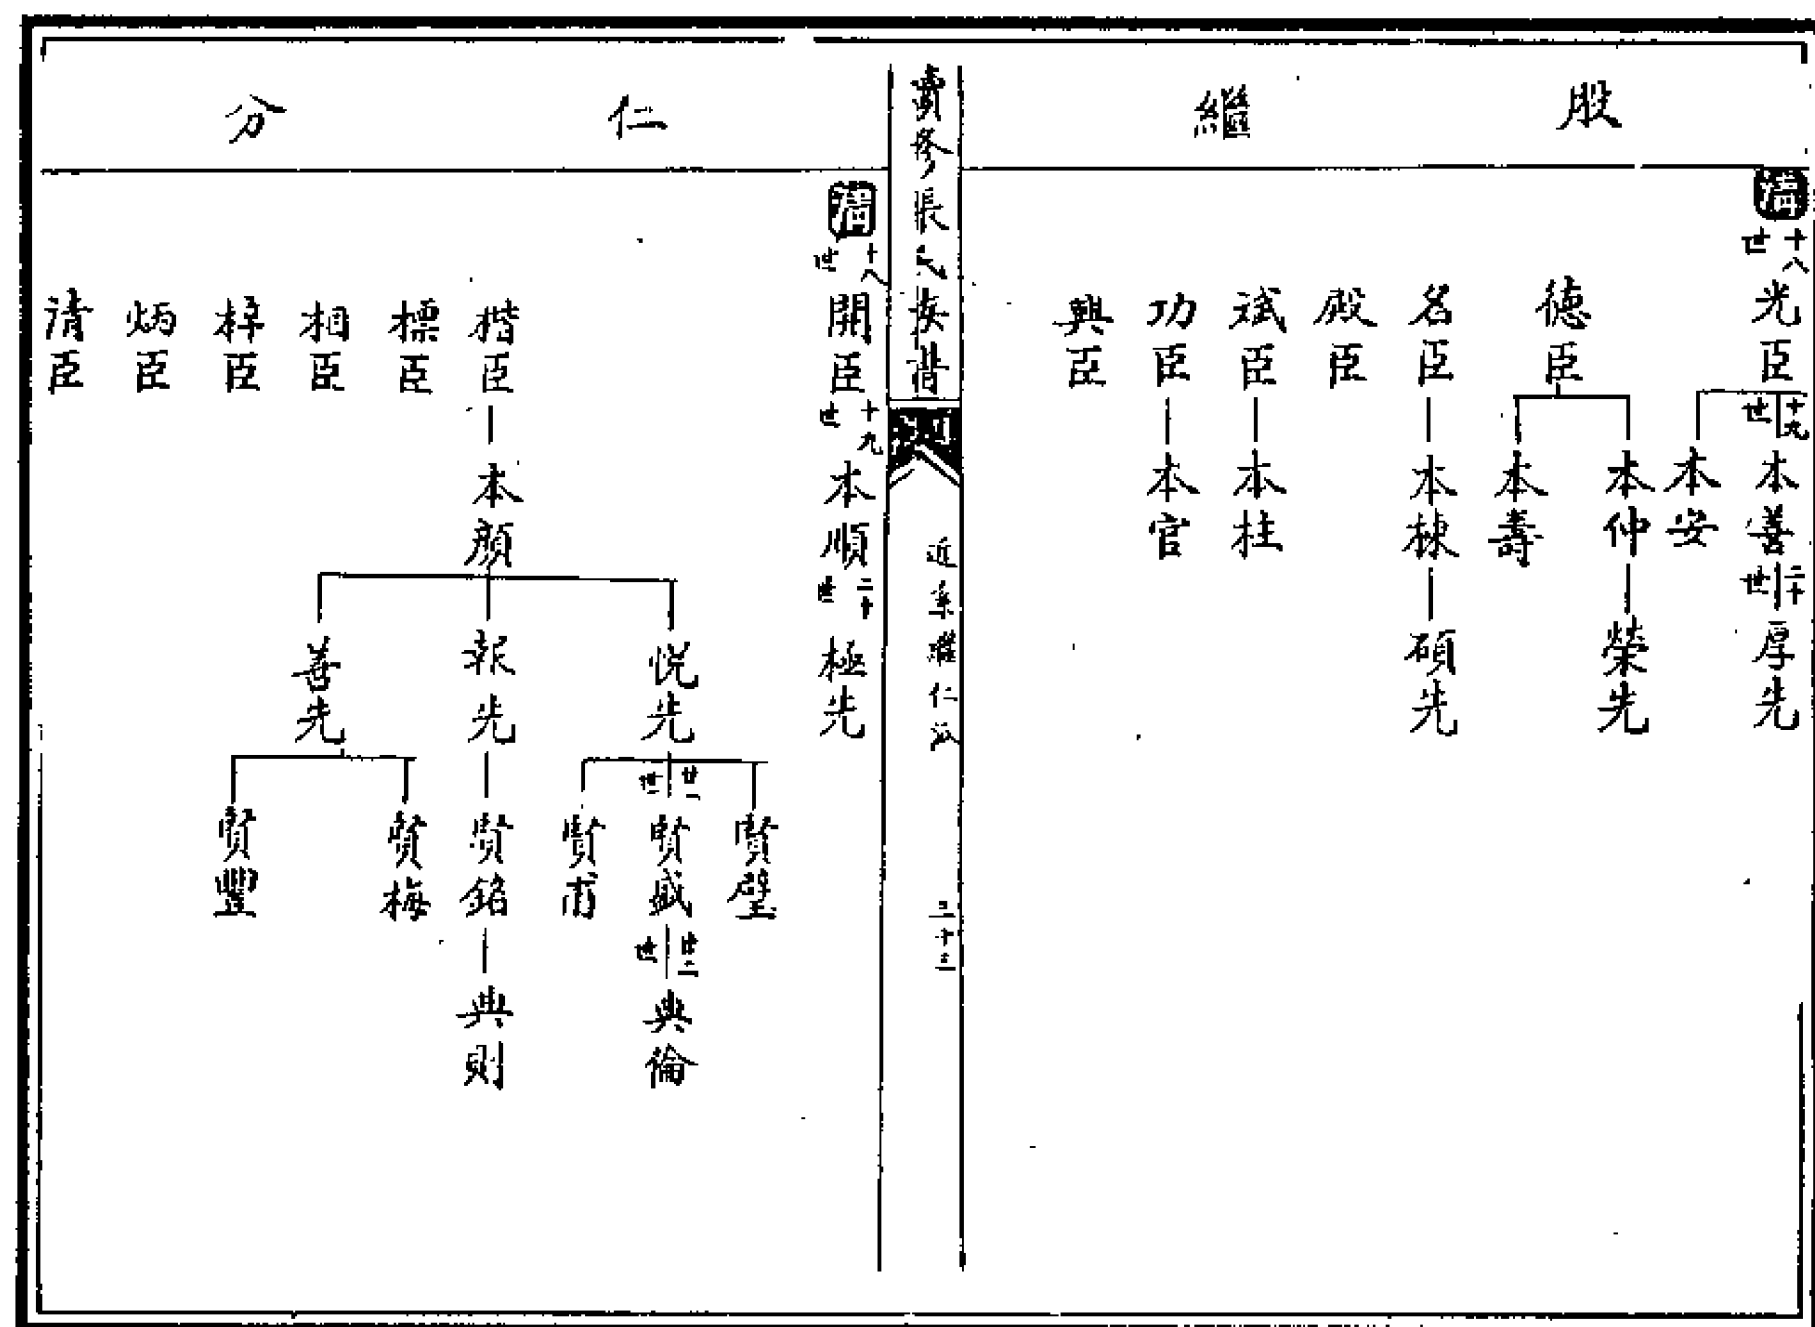 股
繼
溝
十八世
光臣
十九世
本善
二十世
厚先
本安
德臣
本仲
榮先
本壽
名臣
本棟
碩先
殿臣
斌臣
本柱
功臣
本官
興臣
張氏
近系繼仁派
二十三
仁
分
溝
十八世
開臣
十九世
本順
二十世
極先
楷臣
本顏
悦先
廿一世
賢璧
賢盛
廿二世
典倫
賢甫
報先
賢銘
典則
善先
賢梅
賢豐
標臣
相臣
梓臣
炳臣
清臣